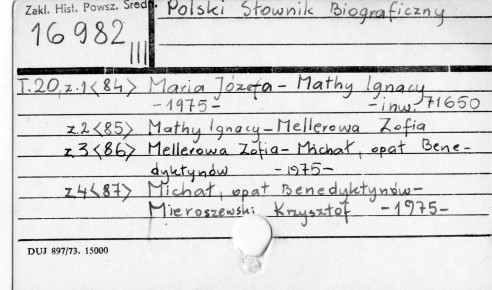 Zakł. Hist. Powsz. Średn. Polski Słownik Biograficzny
16 982
III
T.20, z.1<84> Maria Józefa – Mathy Ignacy
-1975- -inw. 71650
z.2<85> Mathy Ignacy – Mellerowa Zofia
z.3<86> Mellerowa Zofia – Michał, opat Bene-
dyktynów -1975-
z.4<87> Michał, opat Benedyktynów-
Mieroszewski Krzysztof -1975-
DUJ 897/73. 15000